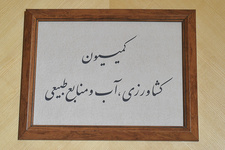 کمیسیون
کشاورزی ،آب و منابع طبیعی